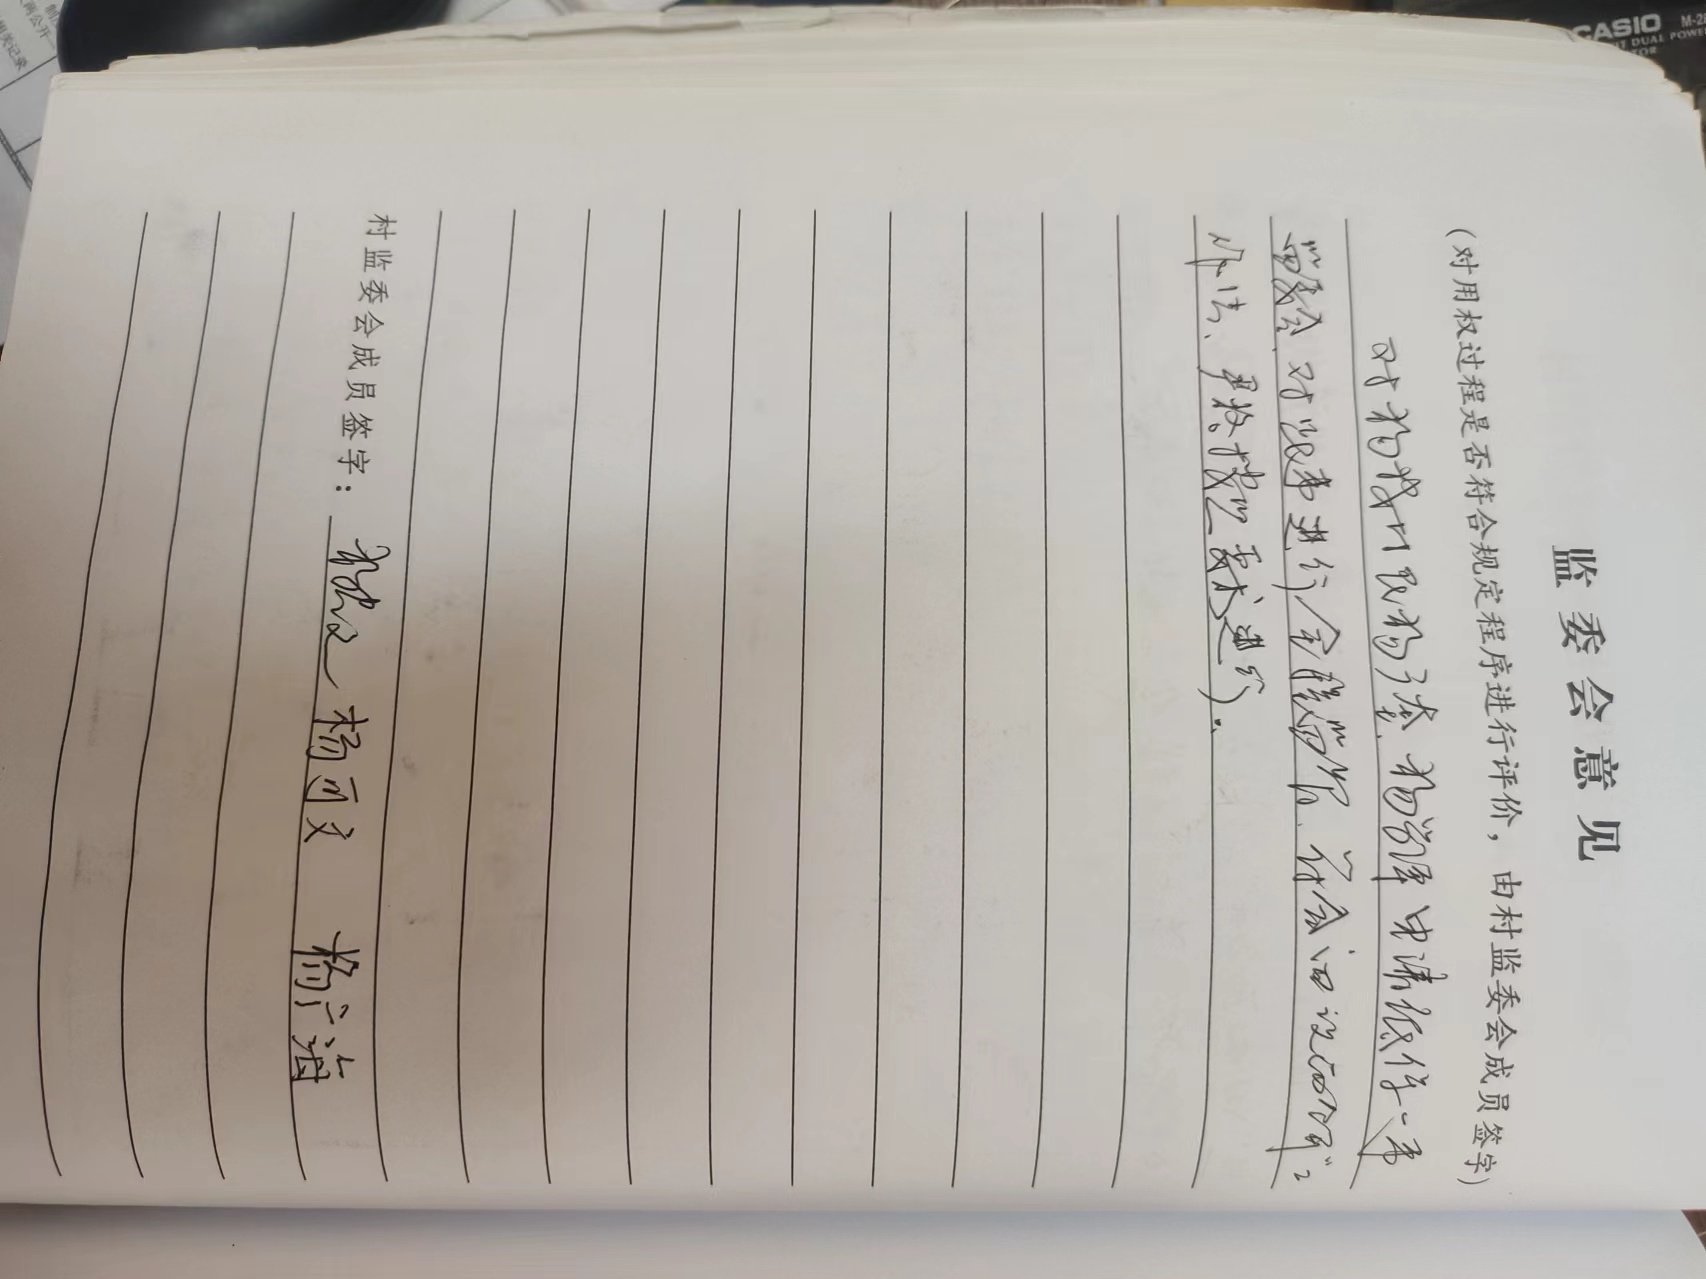 监委会意见
(对用权过程是否符合规定程序进行评价，由村监委会成员签字)
对杨 村民杨 、杨学泽申请低保一事
监委会、对此事进行全程监督、符合四议两公开"2
作法、严格按照要求进行。
村监委会成员签字： 杨忠文 杨可文 杨广海
CASIO
M-28
DUAL POWER
两公开
相关记录